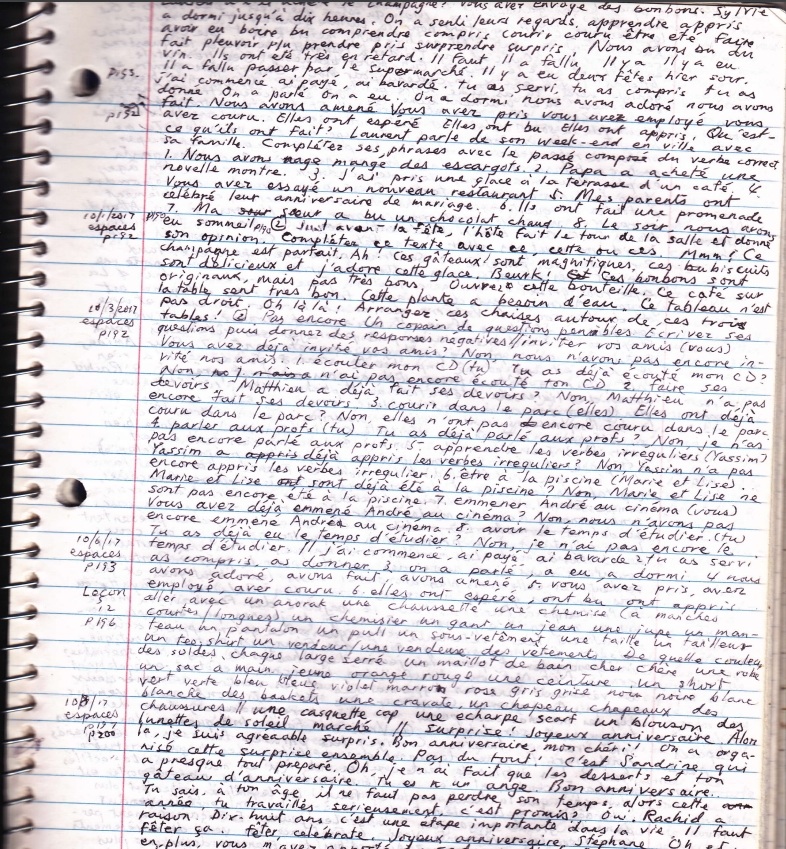 le champagne? vous avez envoyé des bonbons. Sylvie
a dormi jusqu'à dix heures. On a senti leurs regards. apprendre appris
avoir eu boire bu comprendre compris courir couru être été faire
fait pleuvoir plu prendre pris surprendre surpris. Nous avons bu du
vin. Ils ont été très en retard. Il faut Il a fallu Il y a Il y a eu
Il a fallu passer par le supermarché. Il y a eu deux fêtes hier soir.
p193. j'ai commencé ai payé, ai bavardé. tu as servi, tu as compris tu as
donné On a parlé on a eu. On a dormi. nous avons adoré nous avons
p192 fait. Nous avons amené Vous avez pris vous avez employé vous
avez couru. Elles ont espéré Elles ont bu Elles ont appris. Qu'est-
ce qu'ils ont fait? Laurent parle de son week-end en ville avec
sa famille. Complétez ses phrases avec le passé composé du verbe correct
1. Nous avons mangé des escargots 2. Papa a acheté une
novelle montre. 3. J'ai pris une glace à la terrasse d'un café. 4.
Vous avez essayé un nouveau restaurant 5. Mes parents ont
célébré leur anniversaire de mariage. 6. Ils ont fait une promenade
10/1/2017 7. Ma soeur a bu un chocolat chaud. 8. Le soir, nous avons
espaces eu sommeil p190 Just avant la fête, l'hôte fait le tour de la salle et donne
p192 son opinion. Complétez ce texte avec ce cette ou ces. Mmm! Ce
champagne est parfait. Ah! Ces gâteaux sont magnifiques, ces biscuits
sont délicieux et j'adore cette glace. Beurk! Ces bonbons sont
originaux, mais pas très bons. Ouvrez cette bouteille. Ce café sur
la table sent très bon. Cette plante a besoin d'eau. Ce tableau n'est
10/3/2017 pas droit. Oh là là! Arrangez ces chaises autour de ces trois
espaces tables! Pas encore Un copain de questions penibles Ecrivez ses
p192 questions puis donnez des responses negatives//inviter vos amis (vous)
Vous avez déjà invité vos amis? Non, nous n'avons pas encore in-
vité nos amis. 1. écouter mon CD (tu) Tu as déjà écouté mon CD?
Non, je n'ai pas encore écouté ton CD 2. faire ses
devoirs. Matthieu a déjà fait ses devoirs? Non, Matthieu n'a pas
encore fait ses devoirs. 3. courir dans le parc (elles) Elles ont déjà
couru dans le parc? Non, elles n'ont pas encore couru dans le parc
4. parler aux profs (tu) Tu as déjà parlé aux profs? Non, je n'as
pas encore parlé aux profs. 5. apprendre les verbes irreguliers (Yassim)
Yassim a déjà appris les verbes irreguliers? Non, Yassim n'a pas
encore appris les verbes irregulier. 6. être à la piscine (Marie et Lise)...
Marie et Lise sont déjà été à la piscine? Non, Marie et Lise ne
sont pas encore été à la piscine. 7. Emmener André au cinéma (vous)
Vous avez déjà emmené André au cinéma? Non, nous n'avons pas
encore emmené André au cinéma. 8. avoir le temps d'étudier. (tu)
10/6/17 Tu as déjà eu le temps d'étudier? Non, je n'ai pas encore le
espaces temps d'étudier. // j'ai commencé, ai payé, ai bavardé 2 tu as servi
p193 as compris, as donner 3. on a parlé, a eu a dormi 4 nous
avons adoré, avons fait, avons amené 5. vous avez pris, avez
Leçon employé, avez couru 6. elles ont espéré, ont bu ont appris
12 aller avec un anorak une chaussette une chemise (à manches
p196 courtes / longues) un chemisier un gant un jean une jupe un man-
teau un pantalon un pull un sous-vêtement, une taille un tailleur
un tee-shirt un vendeur/une vendeuse des vêtements. De quelle couleur
des soldes chaque large serré un maillot de bain cher chère une robe
un sac a main jaune orange rouge une ceinture un short
vert verte bleu bleus violet marron rose gris grise noir noire blanc
blanche des baskets une cravate un chapeau chapeaux des
10/8/17 chaussures // une casquette cap une écharpe scarf un blouson des
espaces lunettes de soleil marché // Surprise! Joyeux anniversaire Alors
p200 la, je suis agreable surpris. Bon anniversaire, mon chéri! On a orga-
nisé cette surprise ensemble. Pas du tout! C'est Sandrine qui
a presque tout preparé. Oh, je n'ai fait que les desserts et ton
gâteau d'anniversaire. Tu es un ange. Bon anniversaire.
Tu sais, à ton âge, il ne faut pas perdre son temps, alors cette
année, tu travailles serieusement, c'est promis? Oui. Rachid a
raison. Dix-huit ans c'est une étape importante dans la vie. Il faut
fêter ça. fêter, celebrate. Joyeux anniversaire, Stéphane Oh et
en plus, vous m'avez apporté